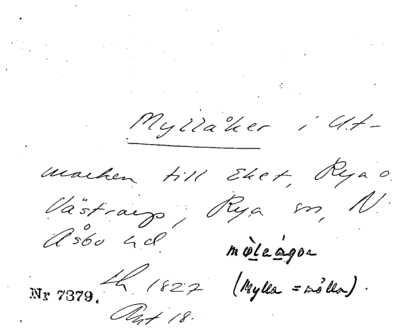 Myllåker i Ut-
marken till Eket, Rya o.
Västraryp, Rya sn, N.
Åsbo hd.
mòleágor
lh. 1827
(Mylla = mölla).
Nr 7379.
Akt 18.